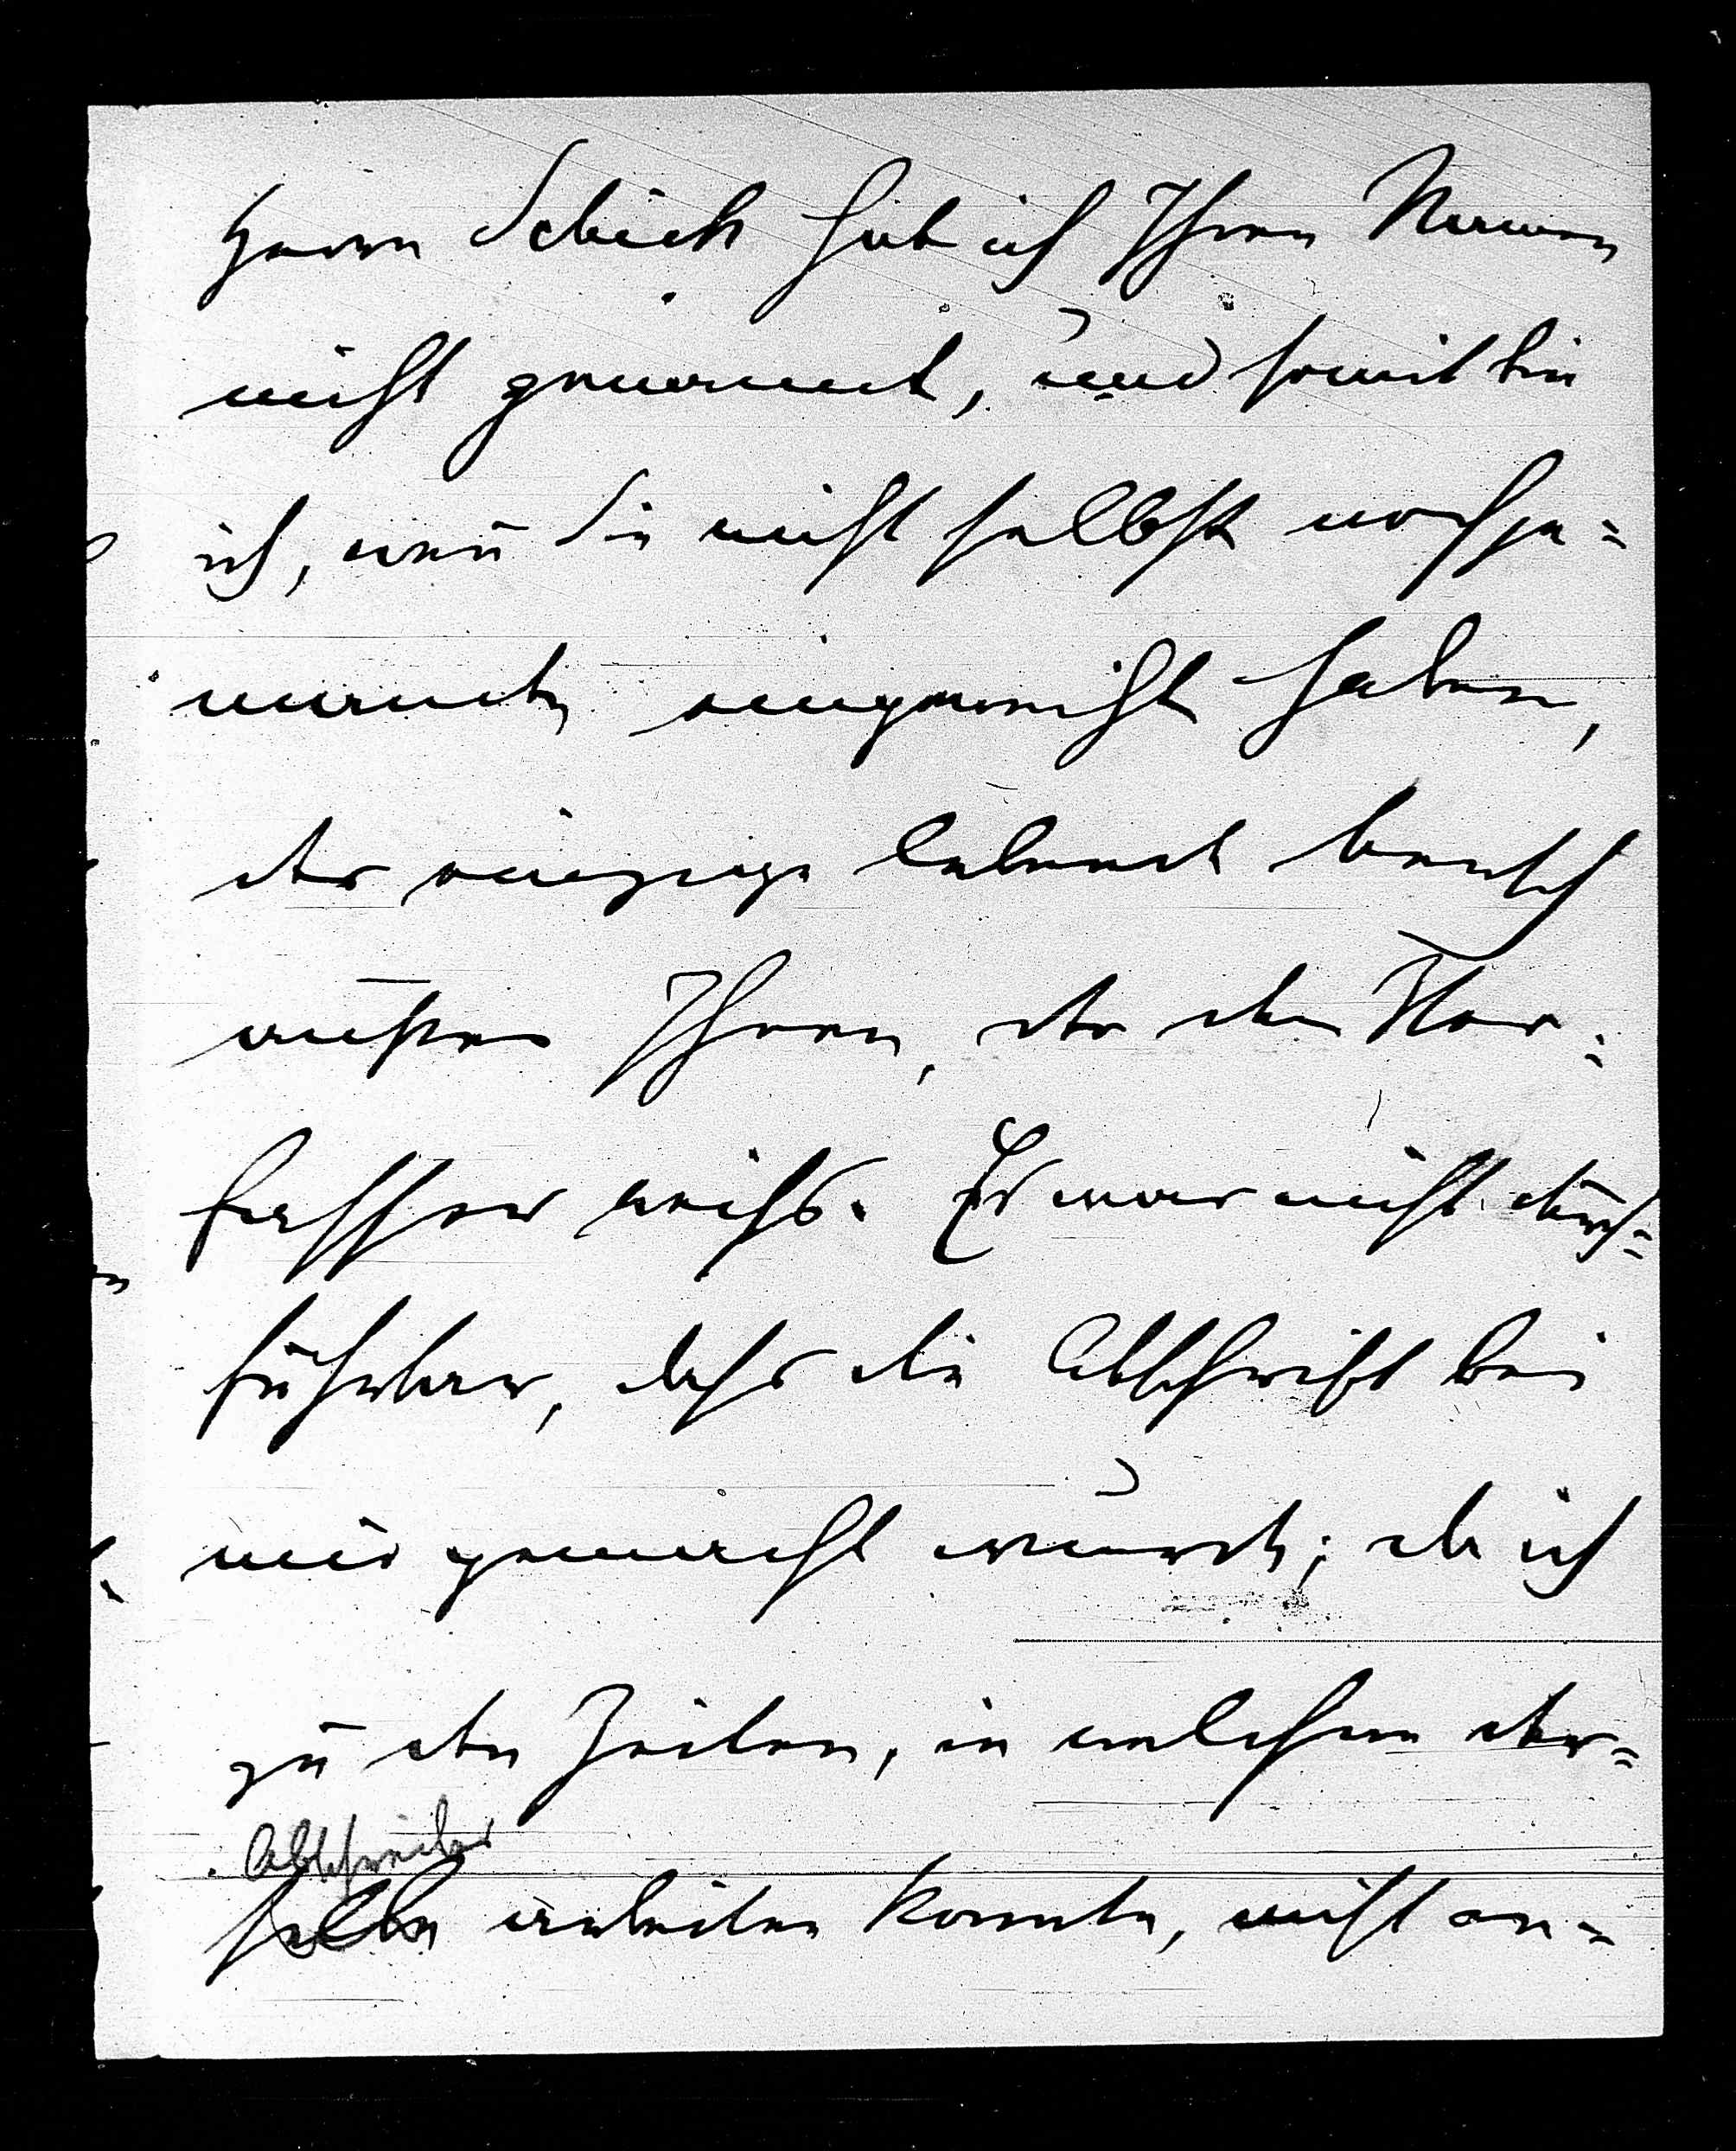 Herrn Schück hab ich Ihren Namen
nicht genannt, und somit bin
ich, wen̄ Sie nicht selbst noch je=
manden eingeweiht haben,
der einzige lebende Mensch
außer Ihnen, der den Ver=
fasser weiß. Es war nicht durch=
führbar, daß die Abschrift bei
mir gemacht wurde; da ich
zu den Zeiten, in welchen der=
Abschreiber
selbe arbeiten konnte, nicht an=